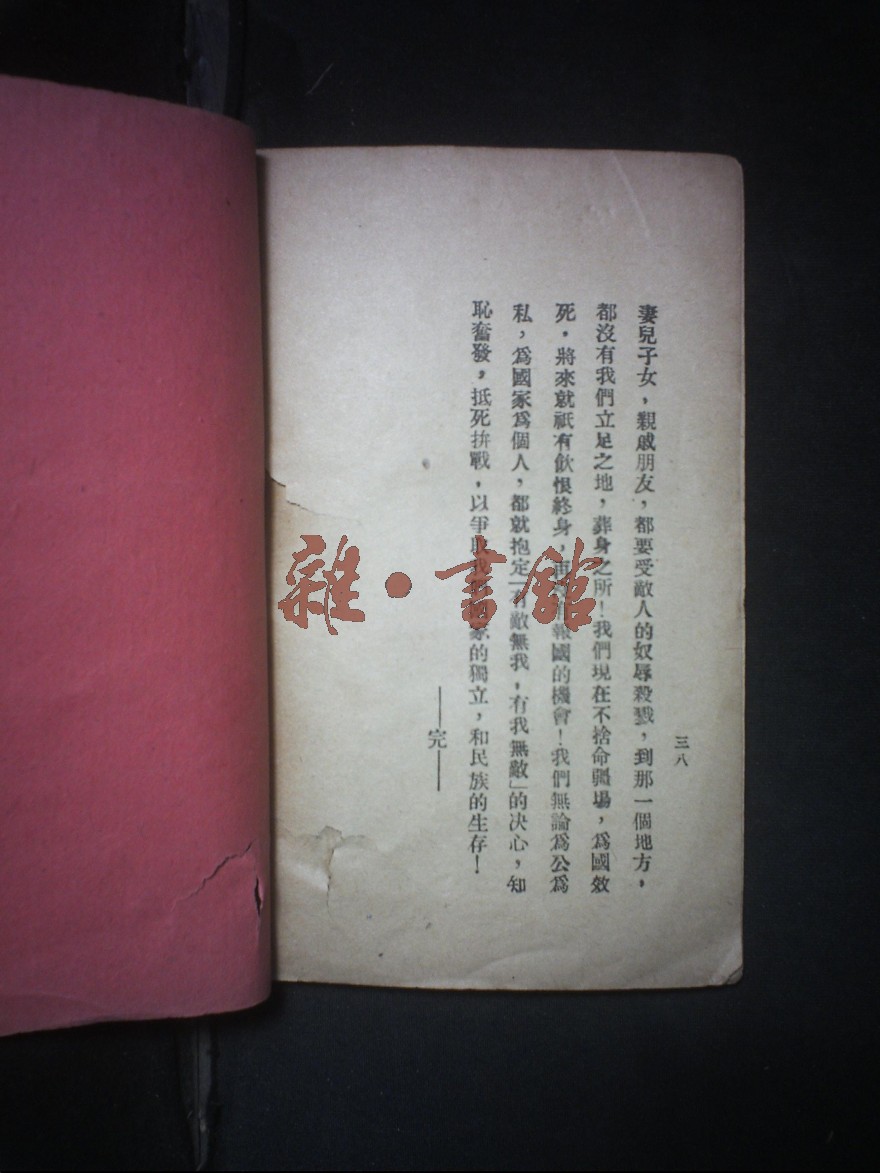 三八
妻兒子女，親戚朋友，都要受敵人的奴辱殺戮，到那一個地方，
都沒有我們立足之地，葬身之所！我們現在不捨命疆場，爲國效
死，將來就祇有飲恨終身，再報國的機會！我們無論爲公爲
私，爲國家爲個人，都就抱定「有敵無我，有我無敵」的决心，知
恥奮發，抵死拚戰，以爭取我國家的獨立，和民族的生存！
——完——
雜·書館